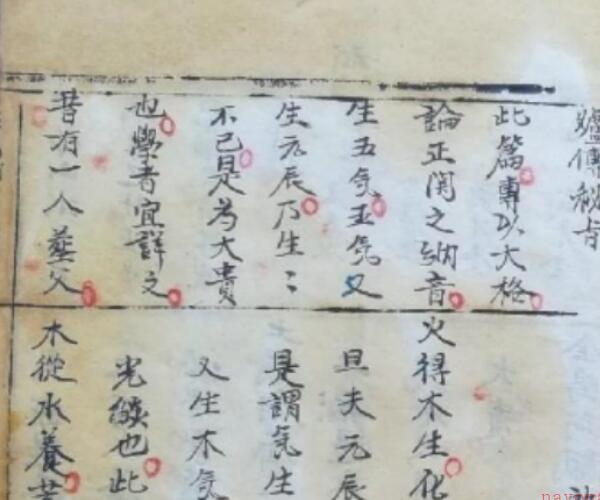 傳秘旨
此篇專以大格
論正関之納音
生五气五气又
生元辰乃生〻
不已是為大貴
也學者宜詳之
昔有一人葬父
火得木生化
旦夫元辰
是謂气生
又生木气
光燄也此
木從水養